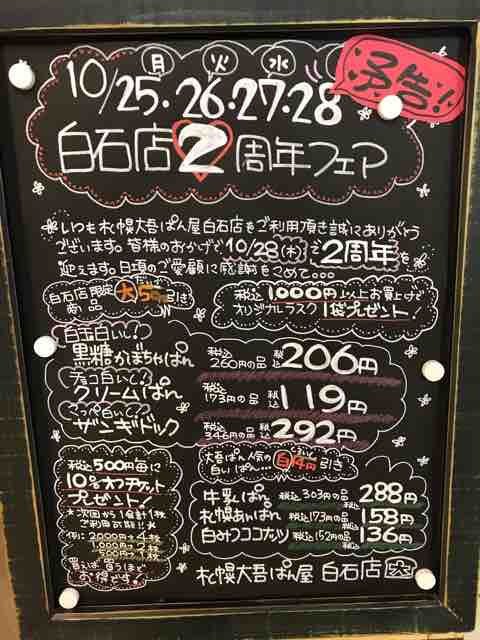 予告!
月 火 水
10/25・26・27・28
白石店2周年フェア
いつも札幌大吾ぱん屋白石店をご利用頂き誠にありがとう
ございます。皆様のおかげで、10/28(木)で2周年を
迎えます。日頃のご愛顧に感謝をこめて…
白石店限定
商品
引き
税込1,000円以上お買上げで
オリジナルラスク1袋プレゼント!
白玉白いし!
黒糖かぼちゃぱん
税込
260円の品
税込
206円
チョコ白いし!
クリームぱん
税込
173円の品
税込
119円
白いし!
ザンギドック
税込
346円の品
税込
292円
税込500円毎に
10%オフチケット
プレゼント!
※次回から1会計1枚
ご利用可能!!※
例に 2000円→4枚
1,000円→2枚
買えば買うほど
お得です。
大吾ぱん人気の
白いぱん…
白14円引き
牛乳ぱん
税込303円の品
288円
札幌あんぱん
税込173円の品
158円
白みつココナッツ
税込152円の品
136円
札幌大吾ぱん屋 白石店